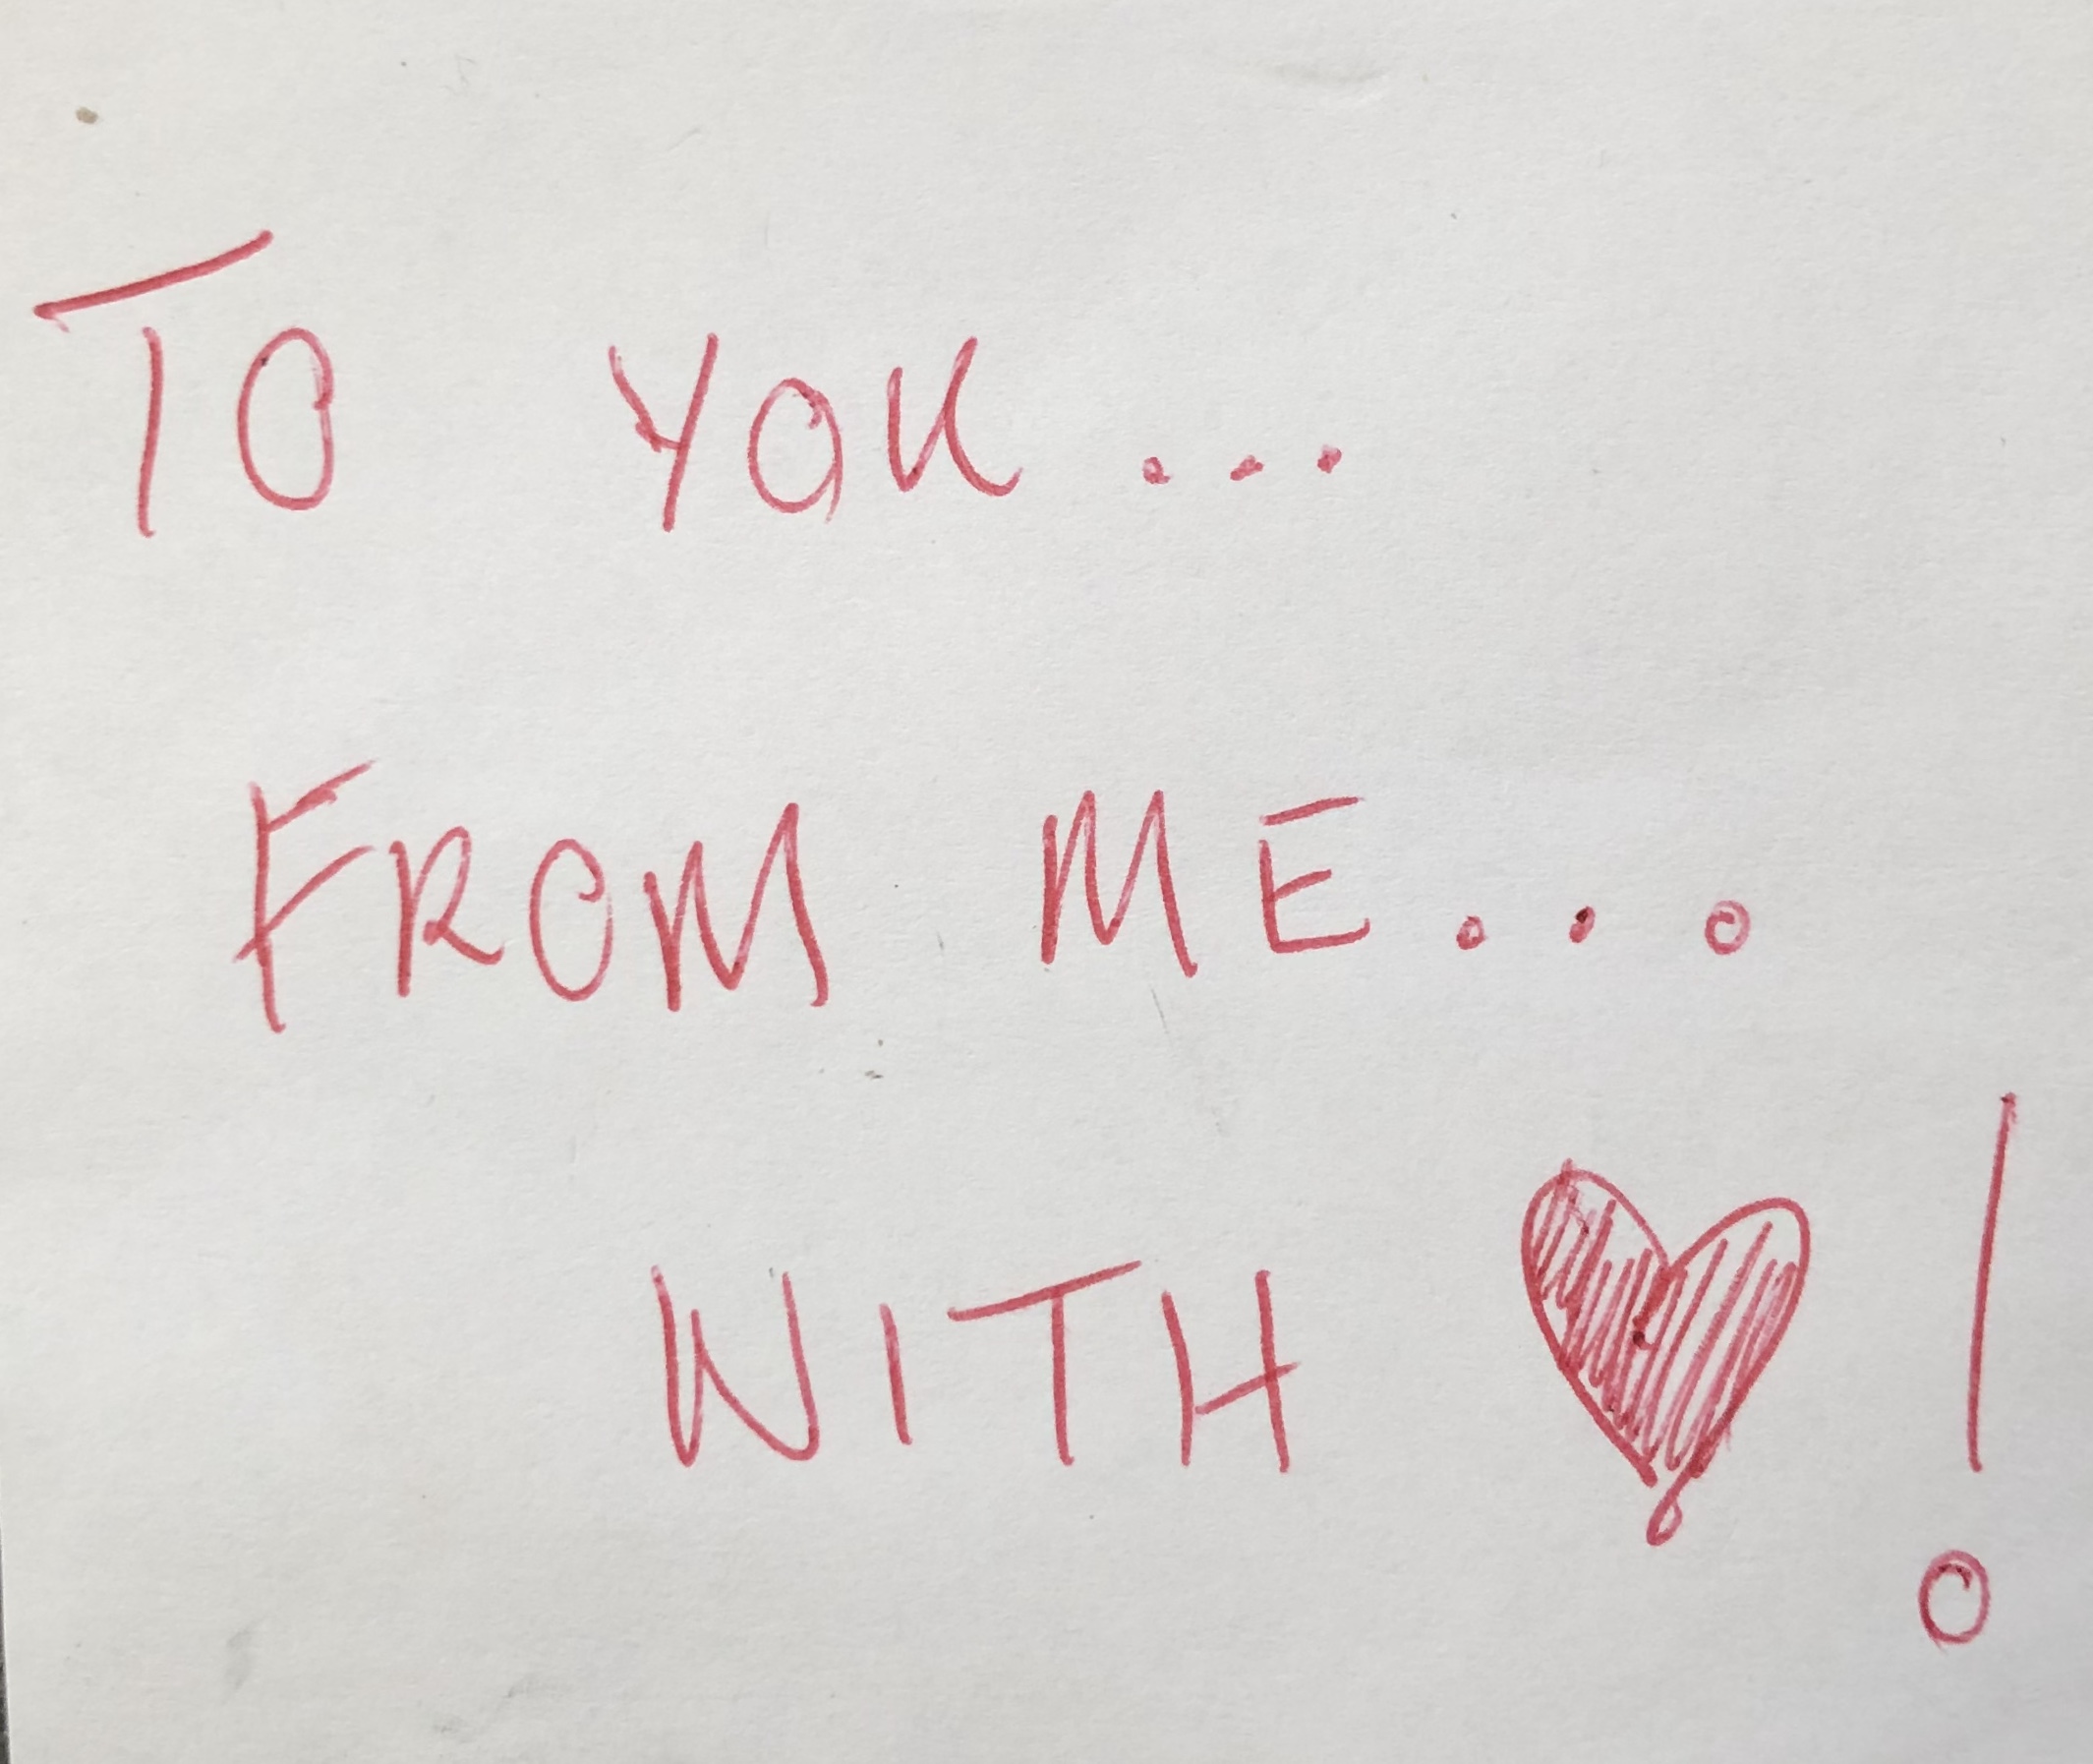 TO YOU...
FROM ME...
WITH ♥!